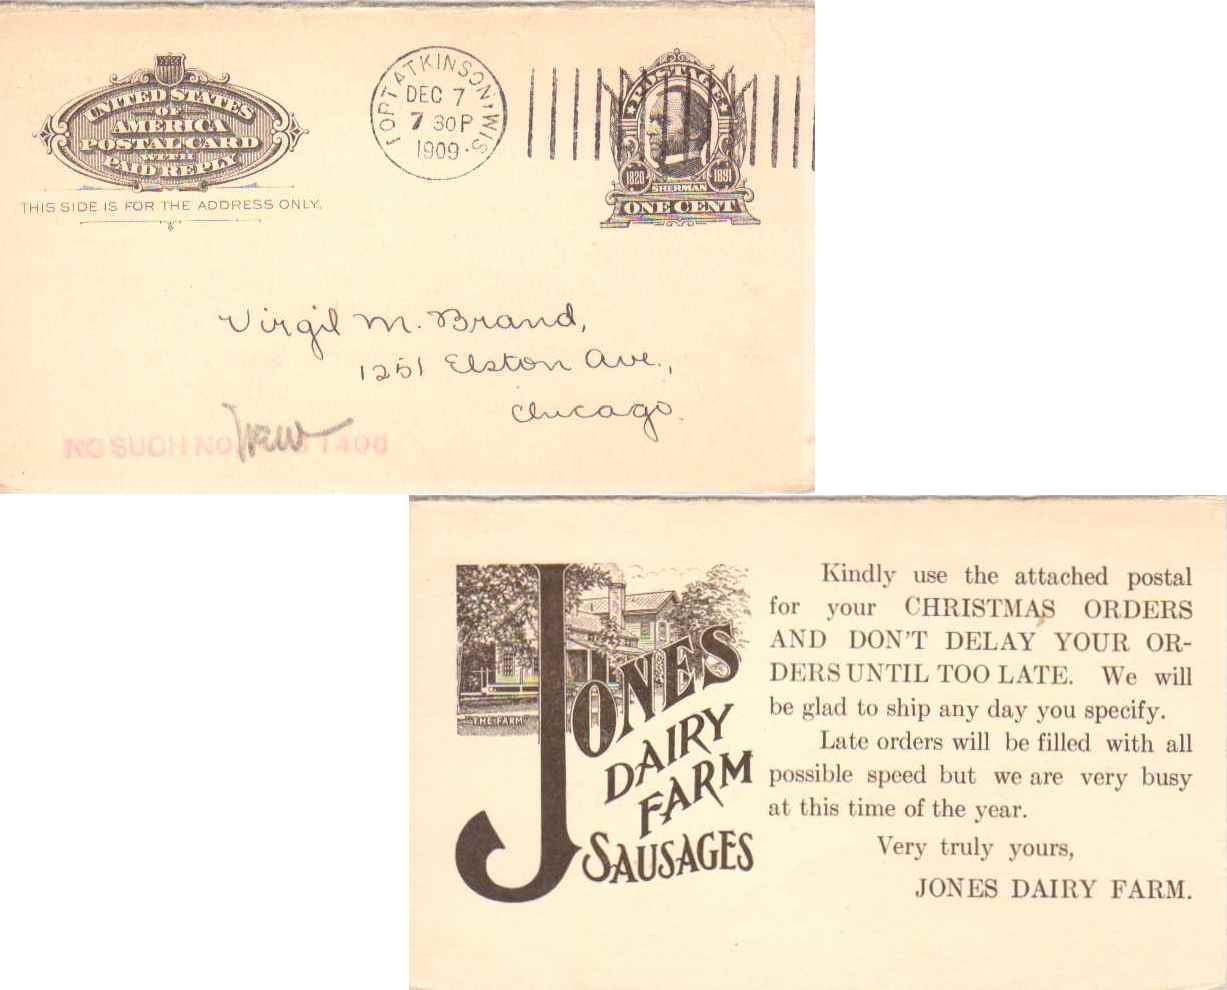 UNITED STATES
OF
AMERICA
POSTAL CARD
WITH
PAID REPLY
THIS SIDE IS FOR THE ADDRESS ONLY.
FORT ATKINSON, WIS.
DEC 7
7 30P
1909
POSTAGE
1820 1891
SHERMAN
ONE CENT
Virgil M. Brand,
1251 Elston Ave.,
Chicago.
NO SUCH NO. 1406
New
"THE FARM"
JONES
DAIRY
FARM
SAUSAGES
Kindly use the attached postal
for your CHRISTMAS ORDERS
AND DON'T DELAY YOUR OR-
DERS UNTIL TOO LATE. We will
be glad to ship any day you specify.
Late orders will be filled with all
possible speed but we are very busy
at this time of the year.
Very truly yours,
JONES DAIRY FARM.